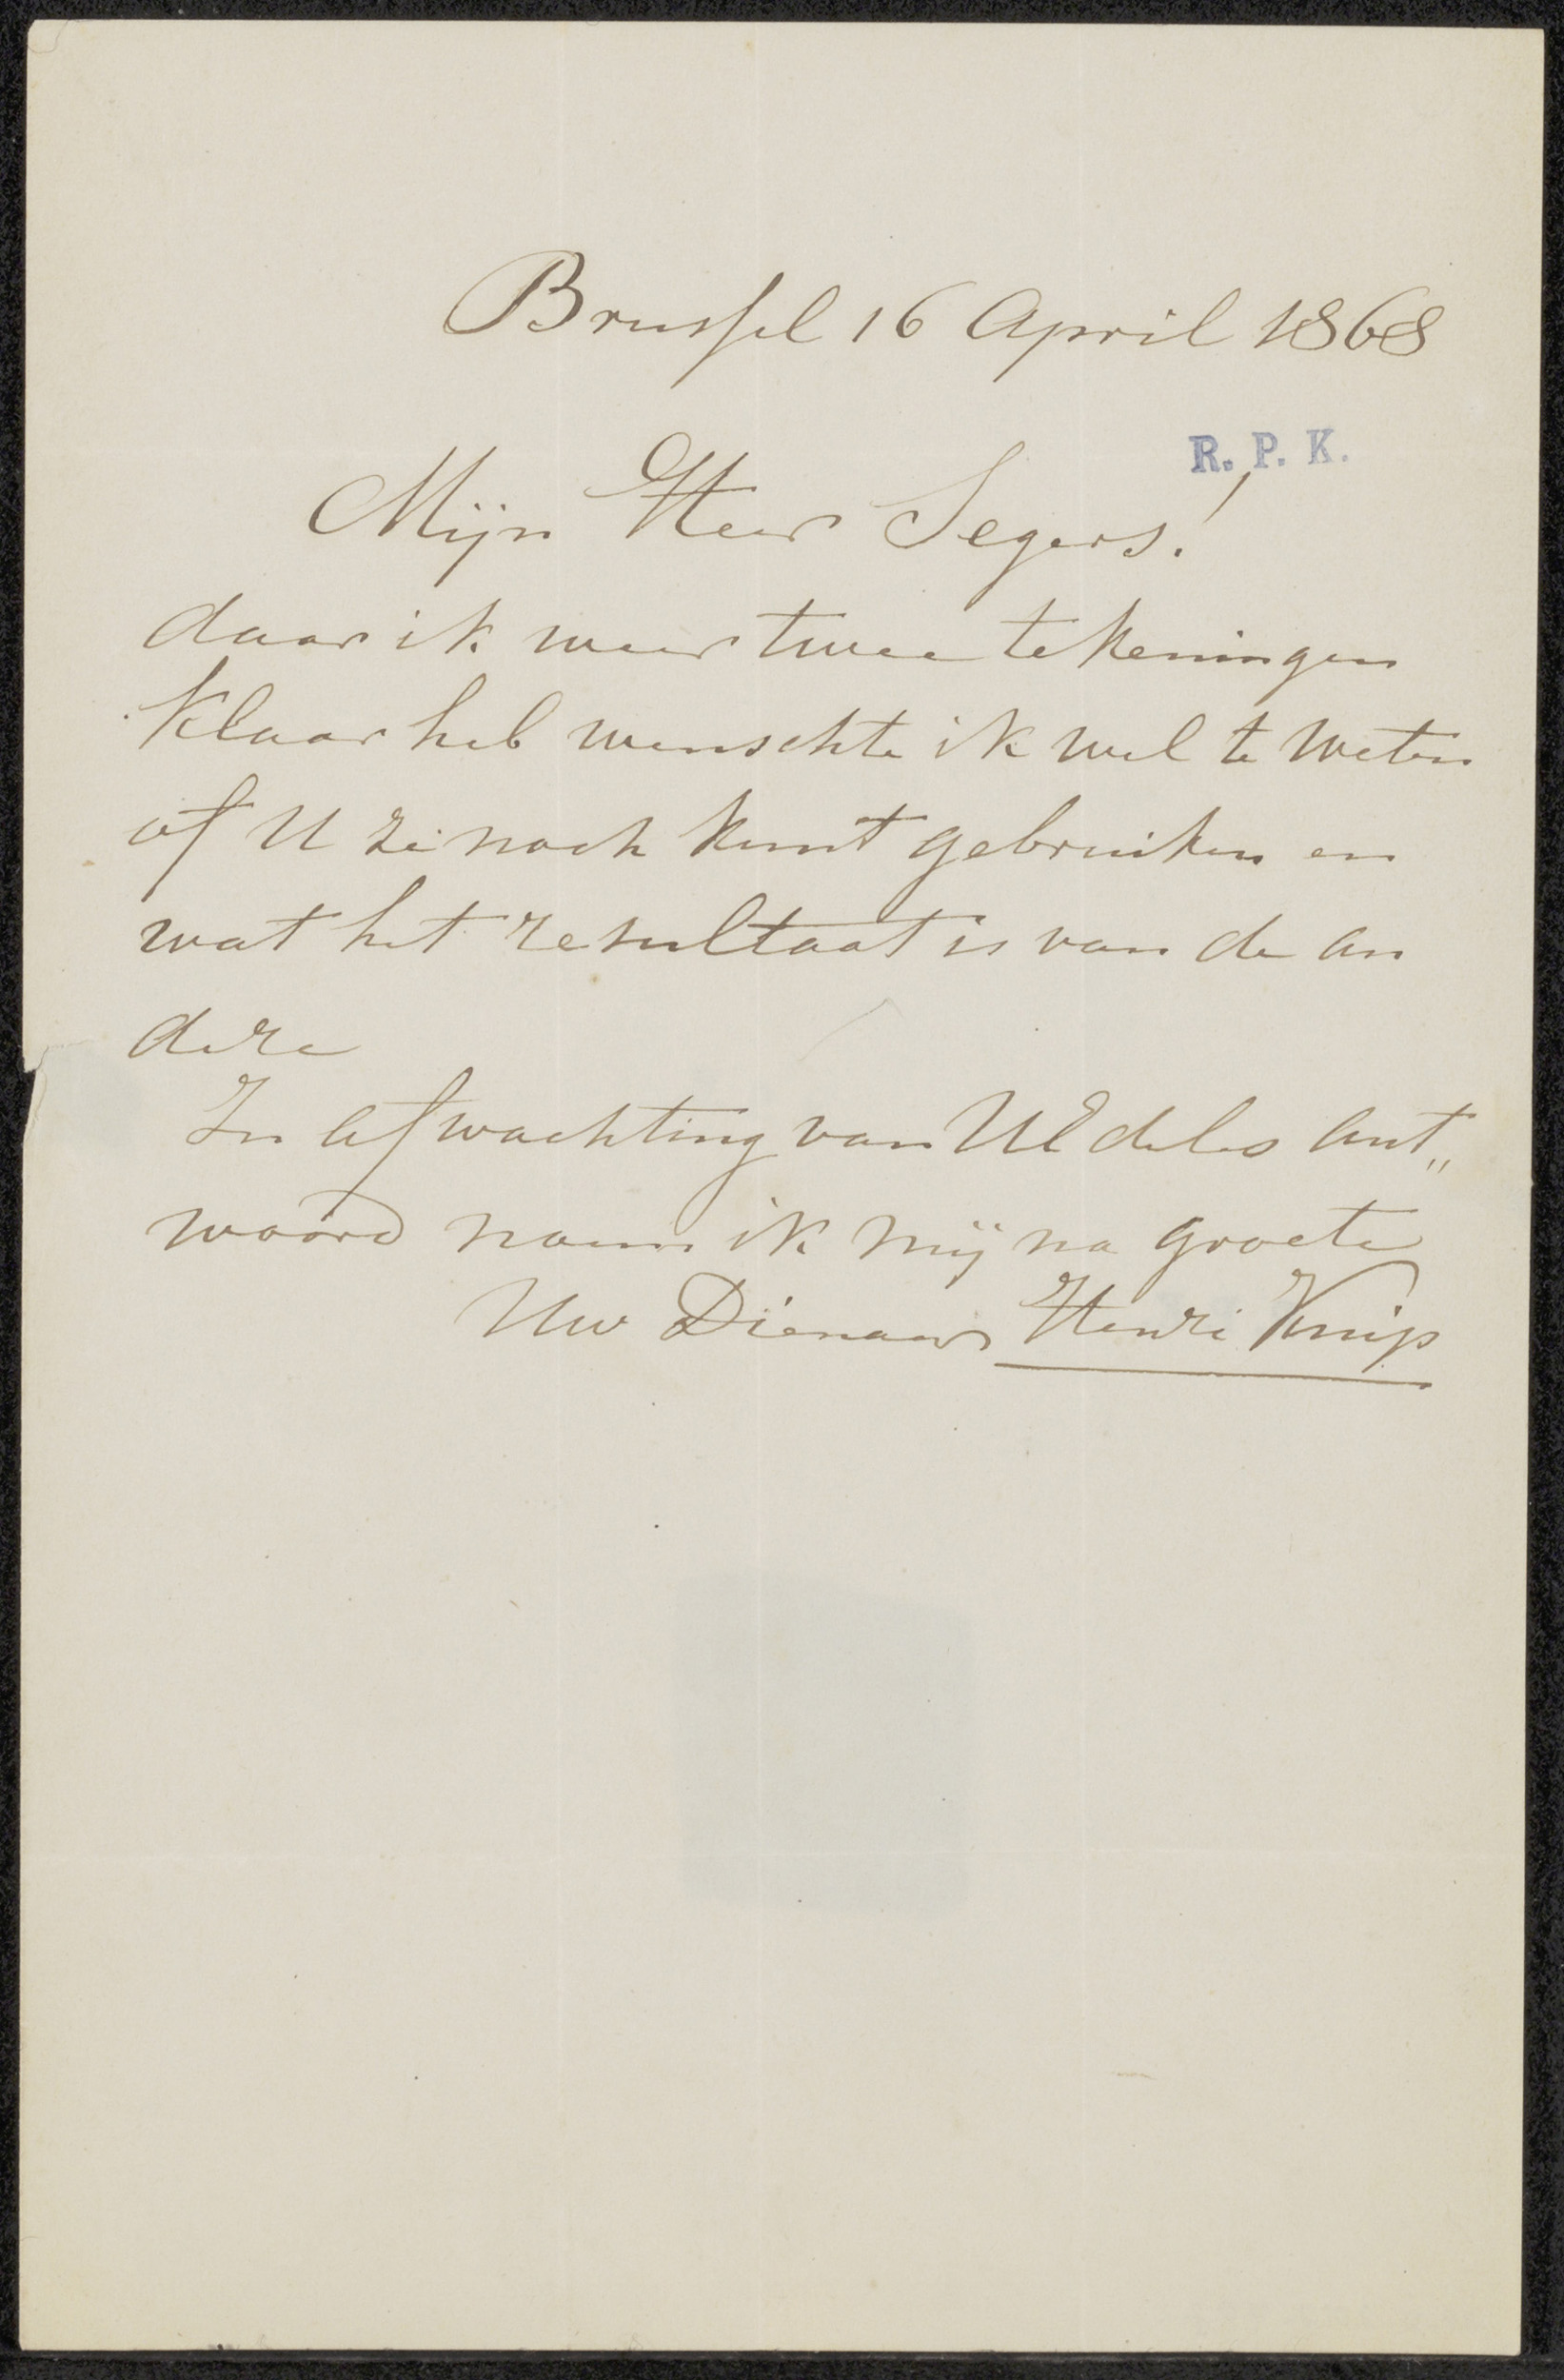 Brussel 16 April 1868
R. P. K.
Mijn Heer Segers!
daar ik weer twee tekeningen
klaar heb wenschte ik wel te weten
of U ze noch kunt gebruiken en
wat het resultaat is van de an
dere
In afwachting van UEdeles ant„
woord noem ik mij na groete
Uw Dienaar Henri Knip